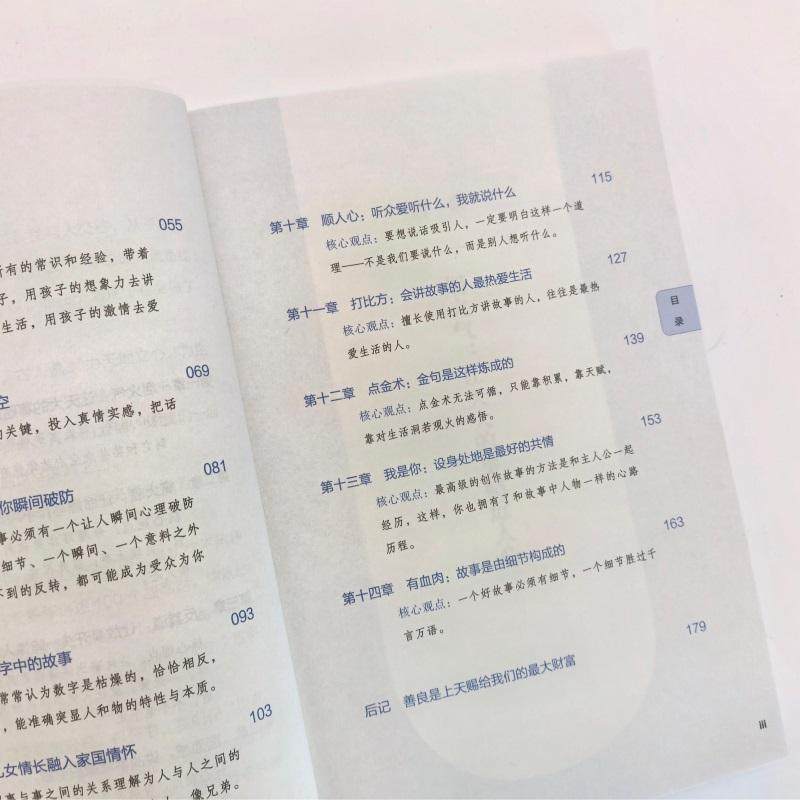 055
所有的常识和经验，带着
子，用孩子的想象力去讲
生活，用孩子的激情去爱
069
空
的关键，投入真情实感，把话
081
你瞬间破防
事必须有一个让人瞬间心理破防
细节、一个瞬间、一个意料之外
不到的反转，都可能成为受众为你
093
字中的故事
常常认为数字是枯燥的，恰恰相反，
，能准确突显人和物的特性与本质。
103
儿女情长融入家国情怀
事与事之间的关系理解为人与人之间的
，像兄弟。
第十章 顺人心：听众爱听什么，我就说什么 115
核心观点：要想说话吸引人，一定要明白这样一个道
理——不是我们要说什么，而是别人想听什么。
第十一章 打比方：会讲故事的人最热爱生活 127
核心观点：擅长使用打比方讲故事的人，往往是最热
爱生活的人。
第十二章 点金术：金句是这样炼成的 139
核心观点：点金术无法可循，只能靠积累，靠天赋，
靠对生活洞若观火的感悟。
第十三章 我是你：设身处地是最好的共情 153
核心观点：最高级的创作故事的方法是和主人公一起
经历，这样，你也拥有了和故事中人物一样的心路
历程。
第十四章 有血肉：故事是由细节构成的 163
核心观点：一个好故事必须有细节，一个细节胜过千
言万语。
后记 善良是上天赐给我们的最大财富 179
目
录
iii